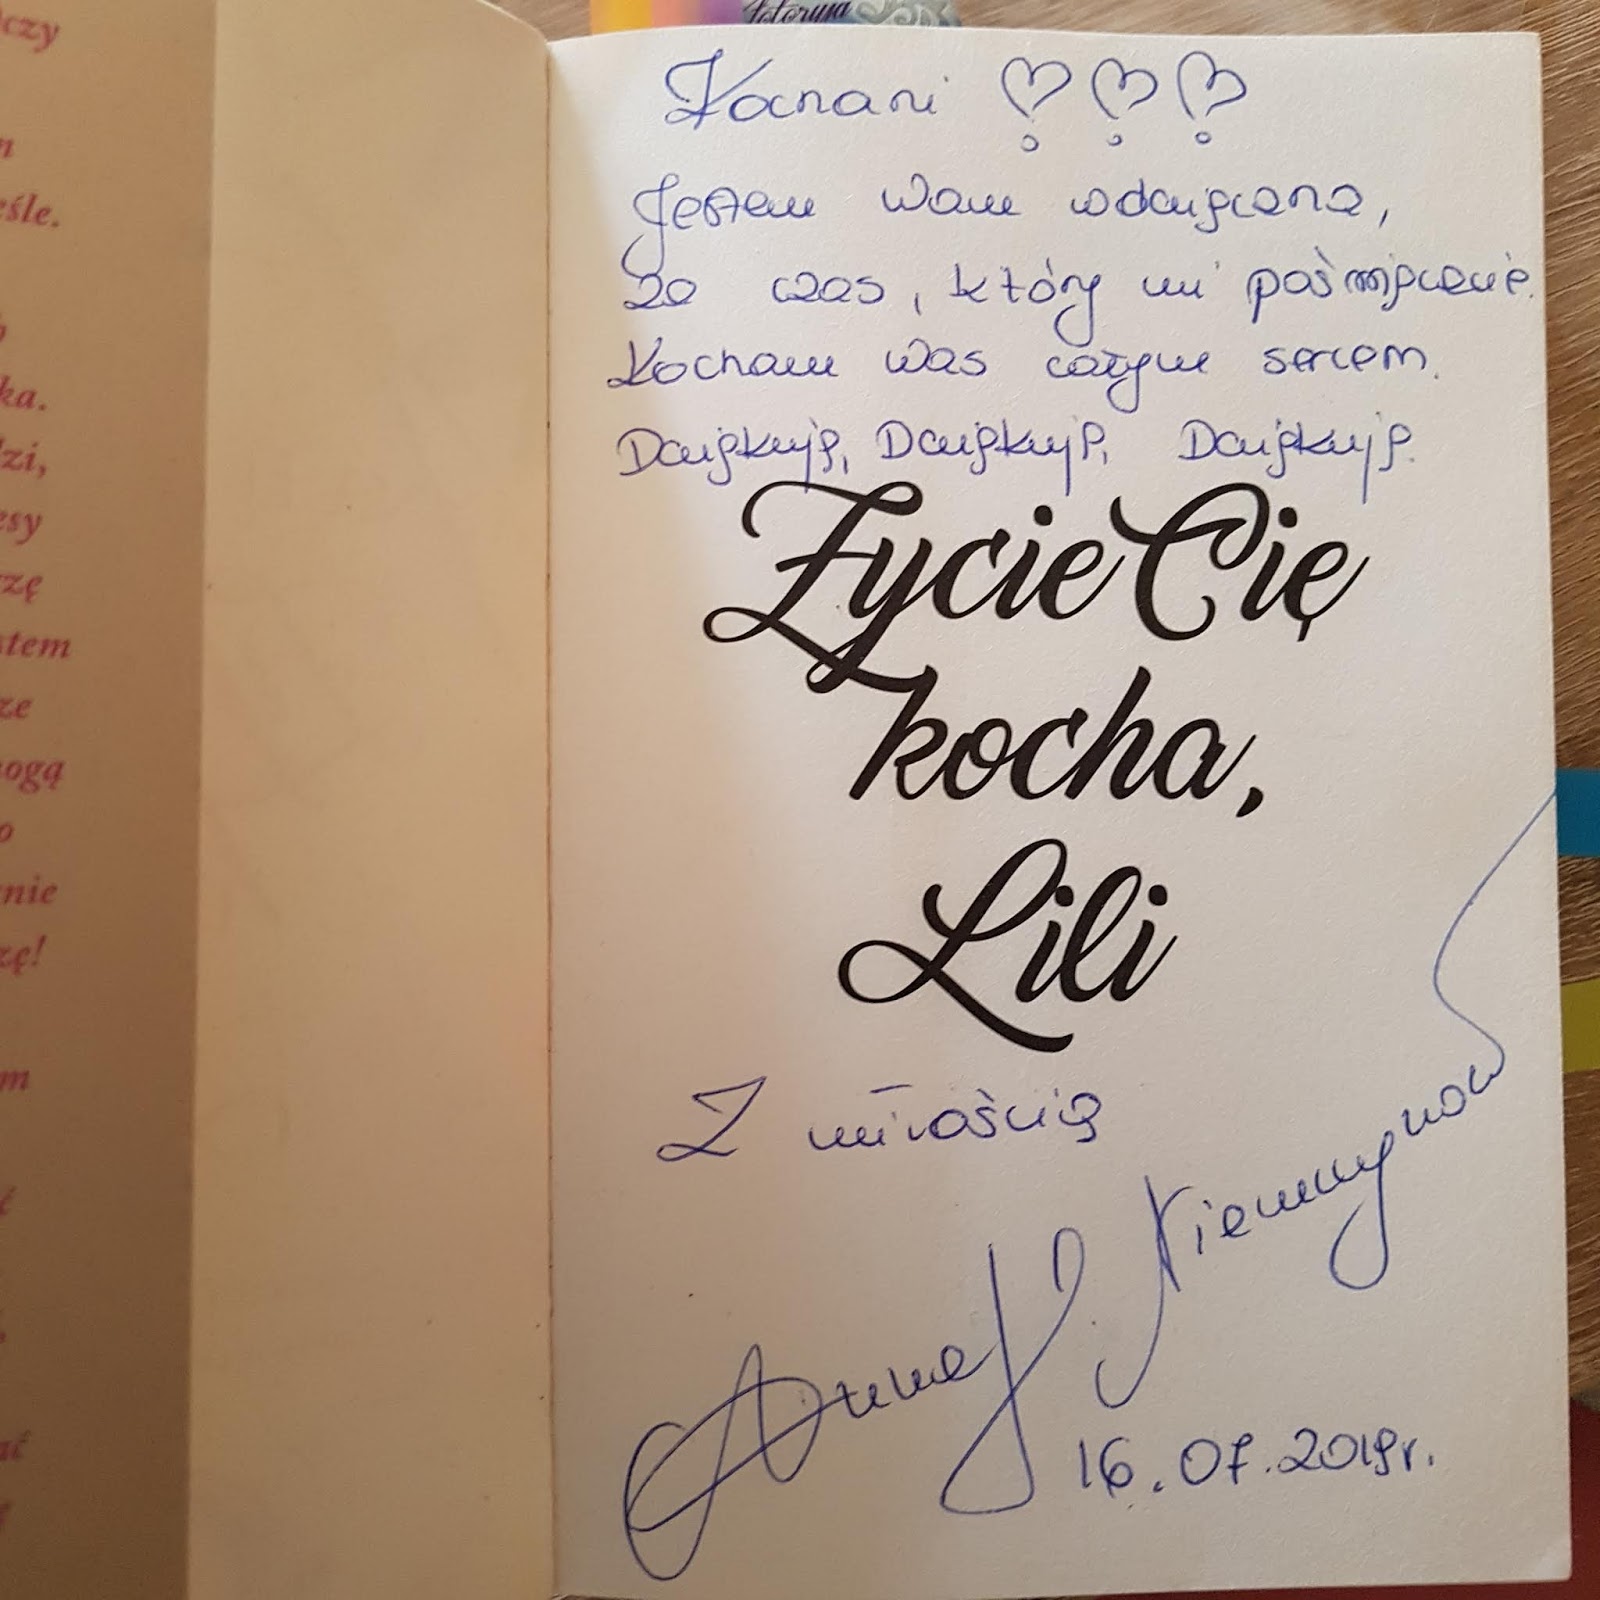 Fotoryja
Kochani
Jestem Wam wdzięczna,
za czas, który mi poświęcacie.
Kocham Was całym sercem.
Dziękuję, Dziękuję, Dziękuję.
Życie Cię
kocha,
Lili
Z miłością
Anna
16.07.2019r.
czy
eśle.
ka.
dzi,
esy
rzę
stem
ze
ogą
o
nie
zę!
m
ać